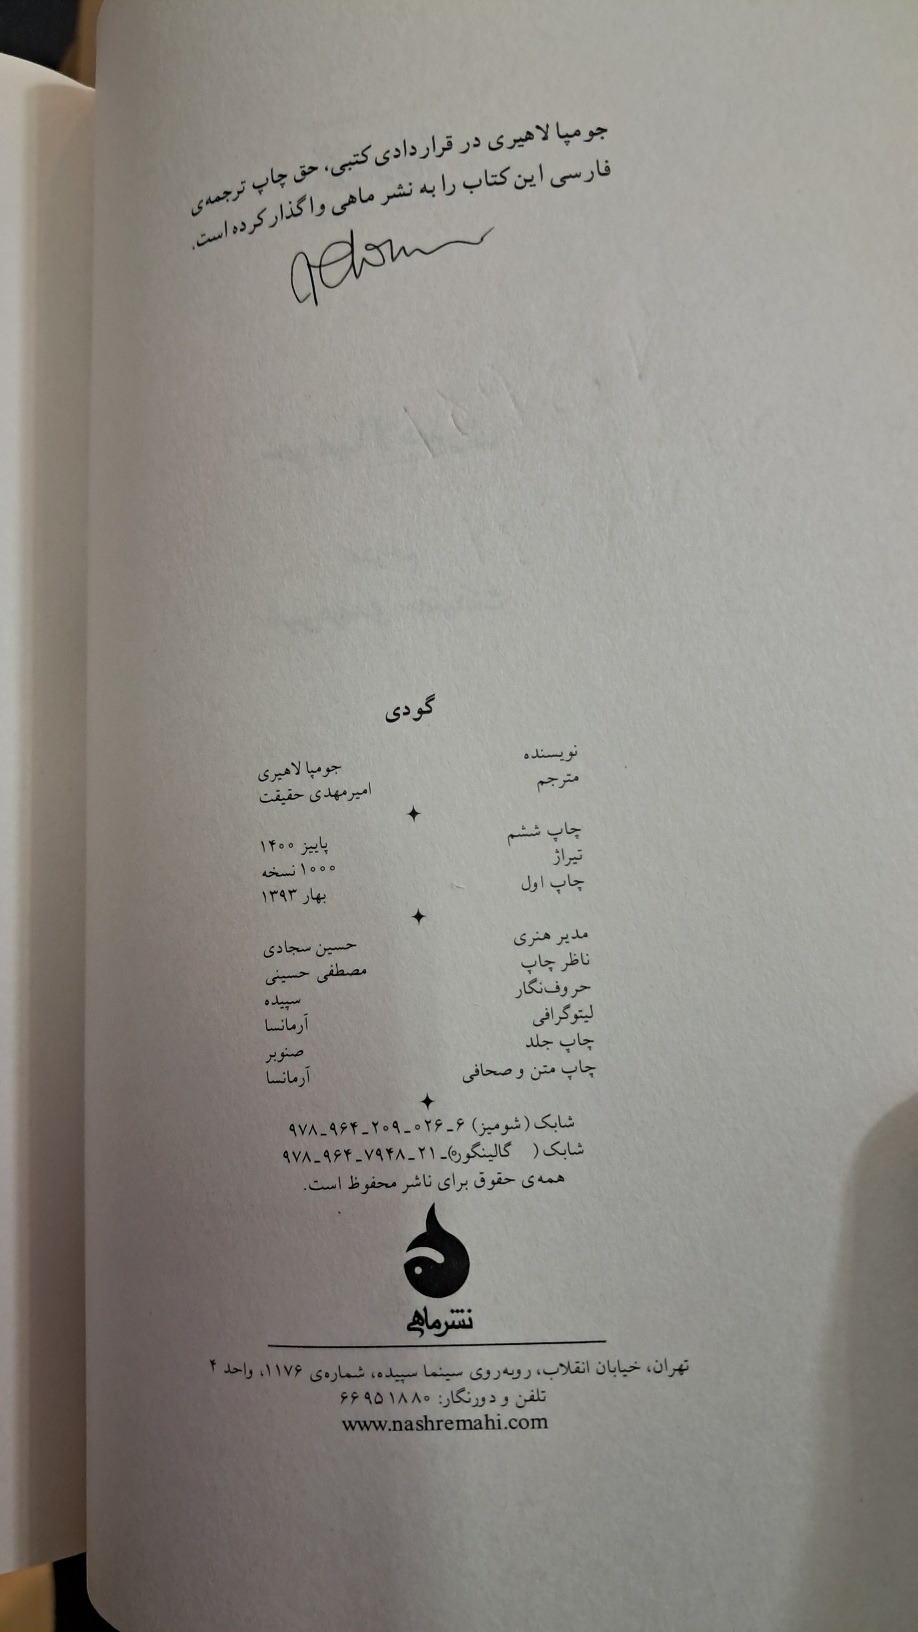 جومپا لاهیری در قراردادی کتبی، حق چاپ ترجمه‌ی
فارسی این کتاب را به نشر ماهی واگذار کرده است.
گودی
نویسنده جومپا لاهیری
مترجم امیرمهدی حقیقت
چاپ ششم پاییز ۱۴۰۰
تیراژ ۱۰۰۰ نسخه
چاپ اول بهار ۱۳۹۳
مدیر هنری حسین سجادی
ناظر چاپ مصطفی حسینی
حروف‌نگار سپیده
لیتوگرافی آرمانسا
چاپ جلد صنوبر
چاپ متن و صحافی آرمانسا
شابک (شومیز) ۶-۰۲۶-۲۰۹-۹۶۴-۹۷۸
شابک (گالینگور) ۲۱-۷۹۴۸-۹۶۴-۹۷۸
همه‌ی حقوق برای ناشر محفوظ است.
نشرماهی
تهران، خیابان انقلاب، روبه‌روی سینما سپیده، شماره‌ی ۱۱۷۶، واحد ۴
تلفن و دورنگار: ۶۶۹۵۱۸۸۰
www.nashremahi.com